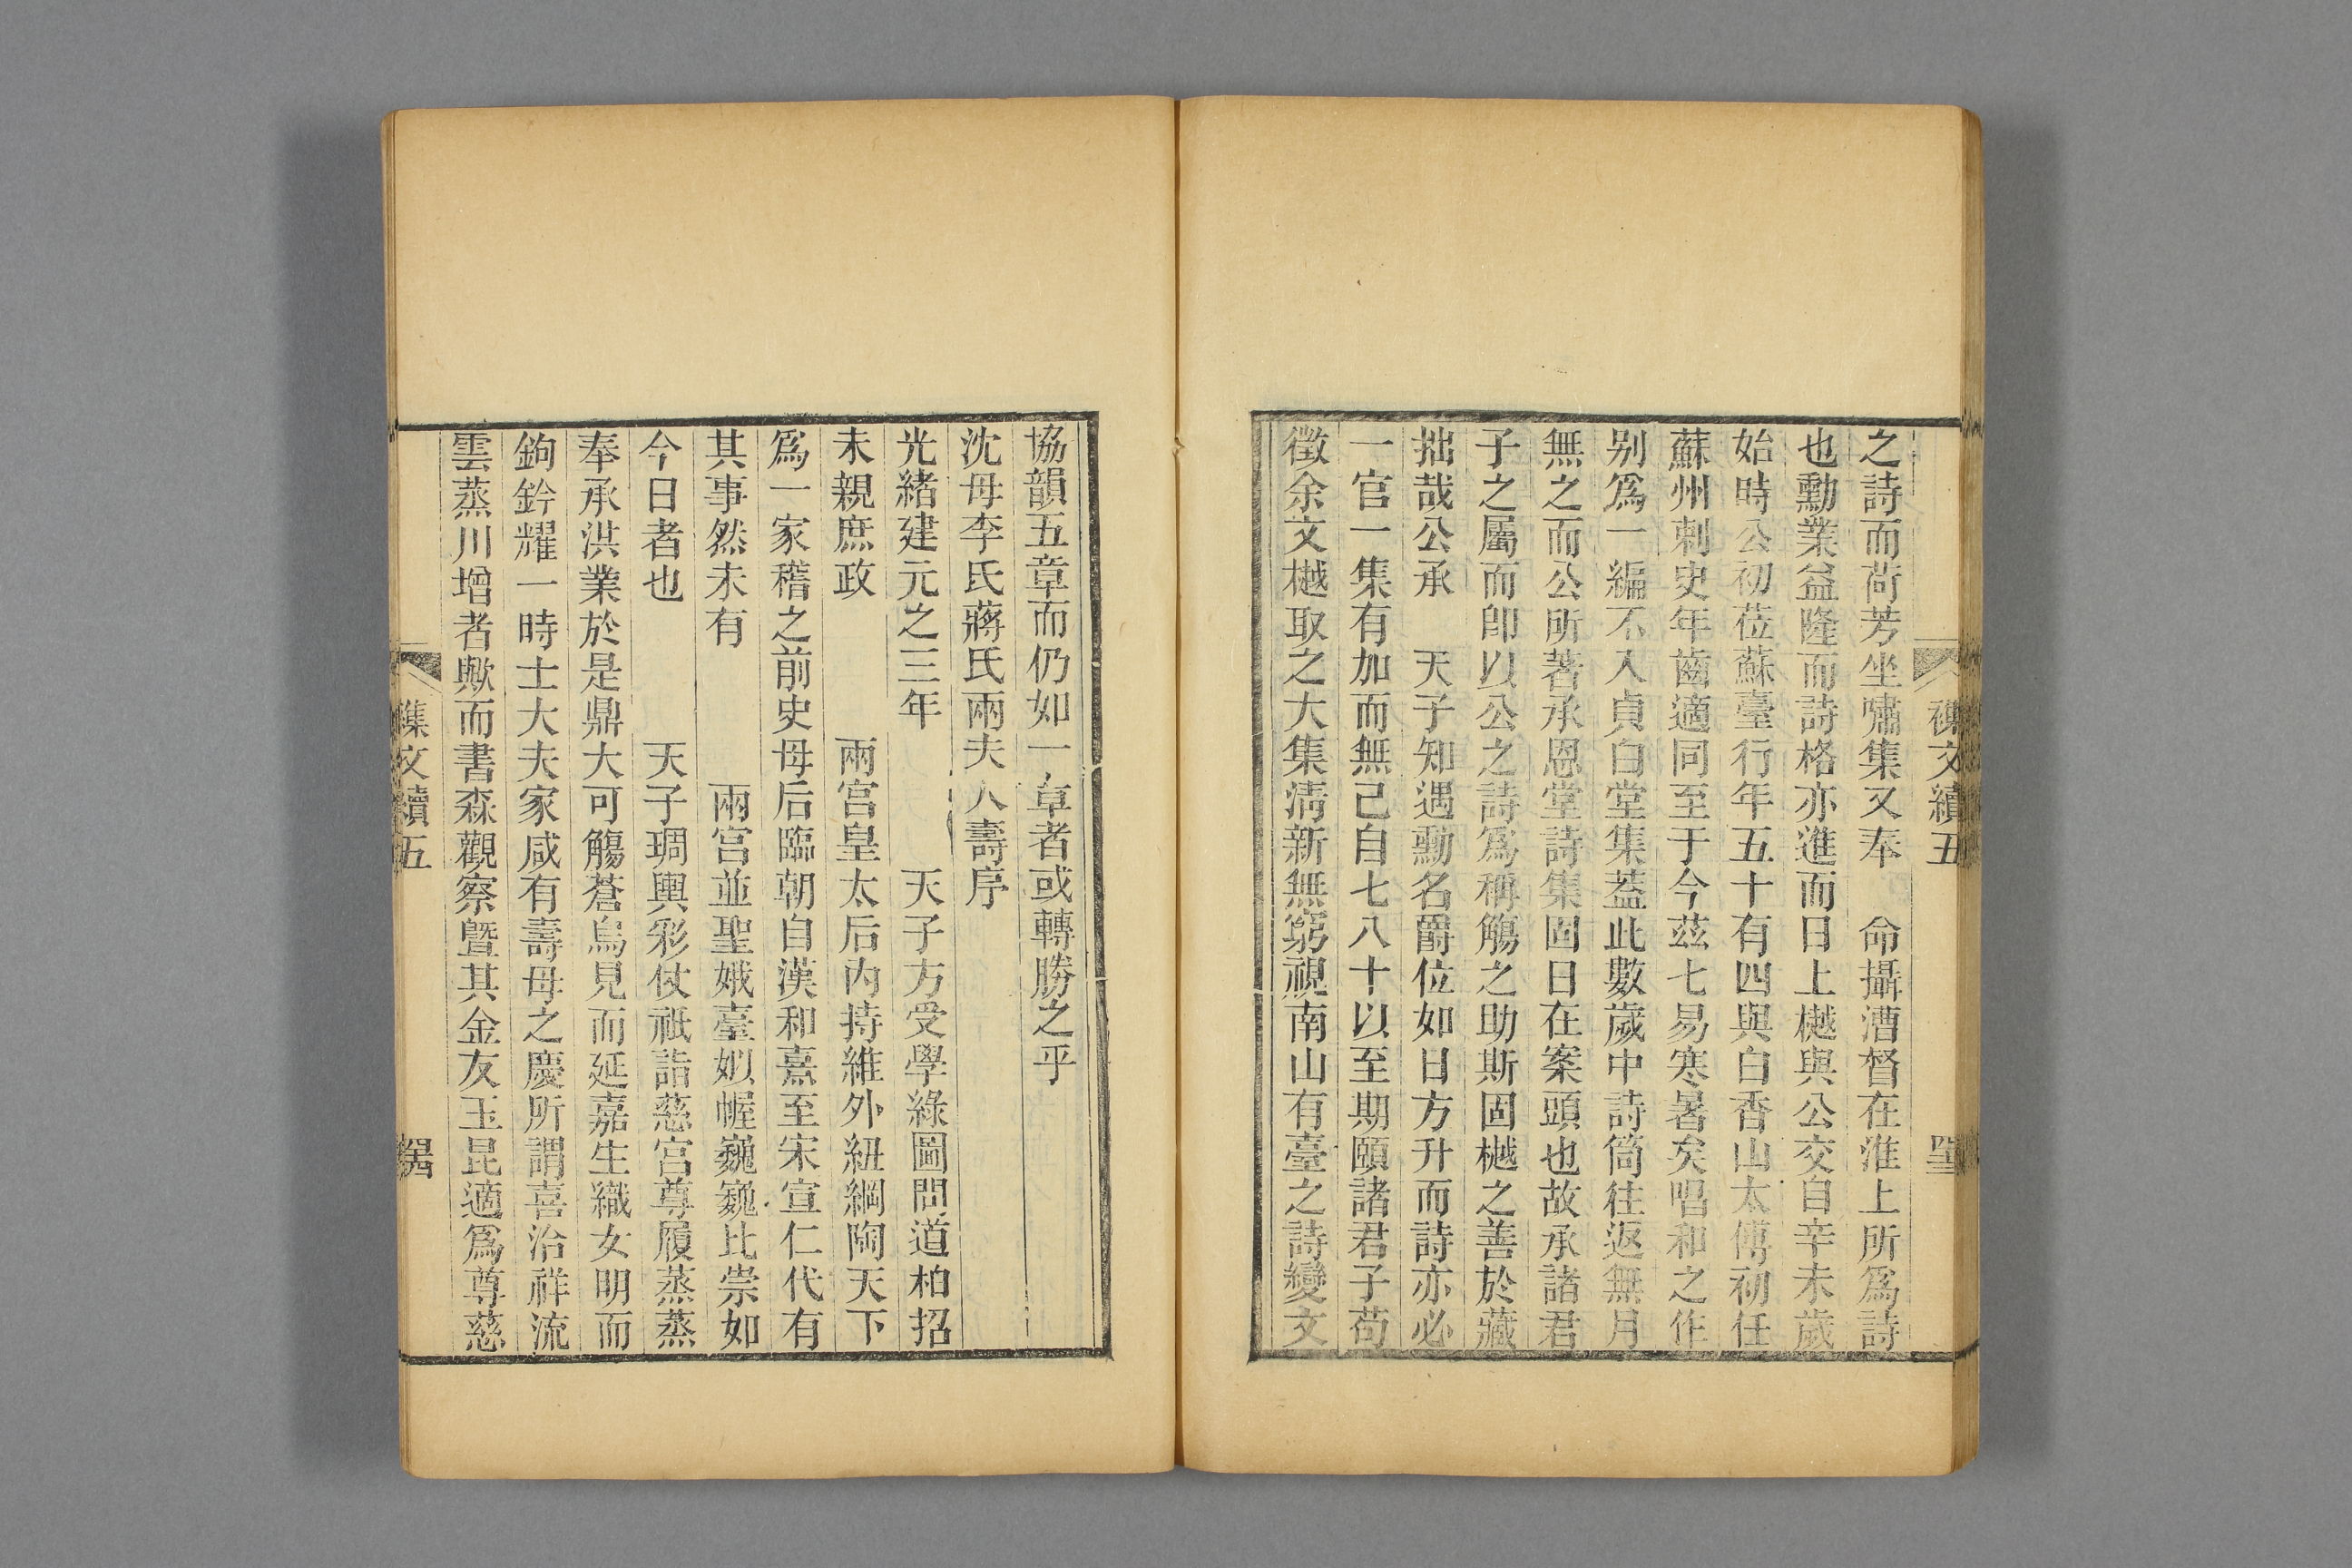 襍文續五
之詩而荷芳坐嘯集又奉　命攝漕督在淮上所爲詩
也勳業益隆而詩格亦進而日上樾與公交自辛未歲
始時公初莅蘇臺行年五十有四與白香山太傅初任
蘇州刺史年齒適同至于今茲七易寒暑矣唱和之作
别爲一編不入貞白堂集葢此數歲中詩筒往返無月
無之而公所著承恩堂詩集固日在案頭也故承諸君
子之屬而卽以公之詩爲稱觴之助斯固樾之善於藏
拙哉公承　天子知遇勳名爵位如日方升而詩亦必
一官一集有加而無已自七八十以至期頤諸君子苟
徵余文樾取之大集淸新無窮視南山有臺之詩變文
協韻五章而仍如一章者或轉勝之乎
沈母李氏蔣氏兩夫人壽序
光緒建元之三年　天子方受學綠圖問道柏招
未親庶政　兩宫皇太后內持維外紐綱陶天下
爲一家稽之前史母后臨朝自漢和熹至宋宣仁代有
其事然未有　兩宫並聖娥臺姒幄巍巍比崇如
今日者也　天子琱輿彩仗祇詣慈宫尊履蒸蒸
奉承洪業於是鼎大可觴蒼烏見而延嘉生織女明而
鉤鈐耀一時士大夫家咸有壽母之慶所謂喜洽祥流
雲蒸川增者歟而書森觀察曁其金友玉昆適爲尊慈
襍文續五